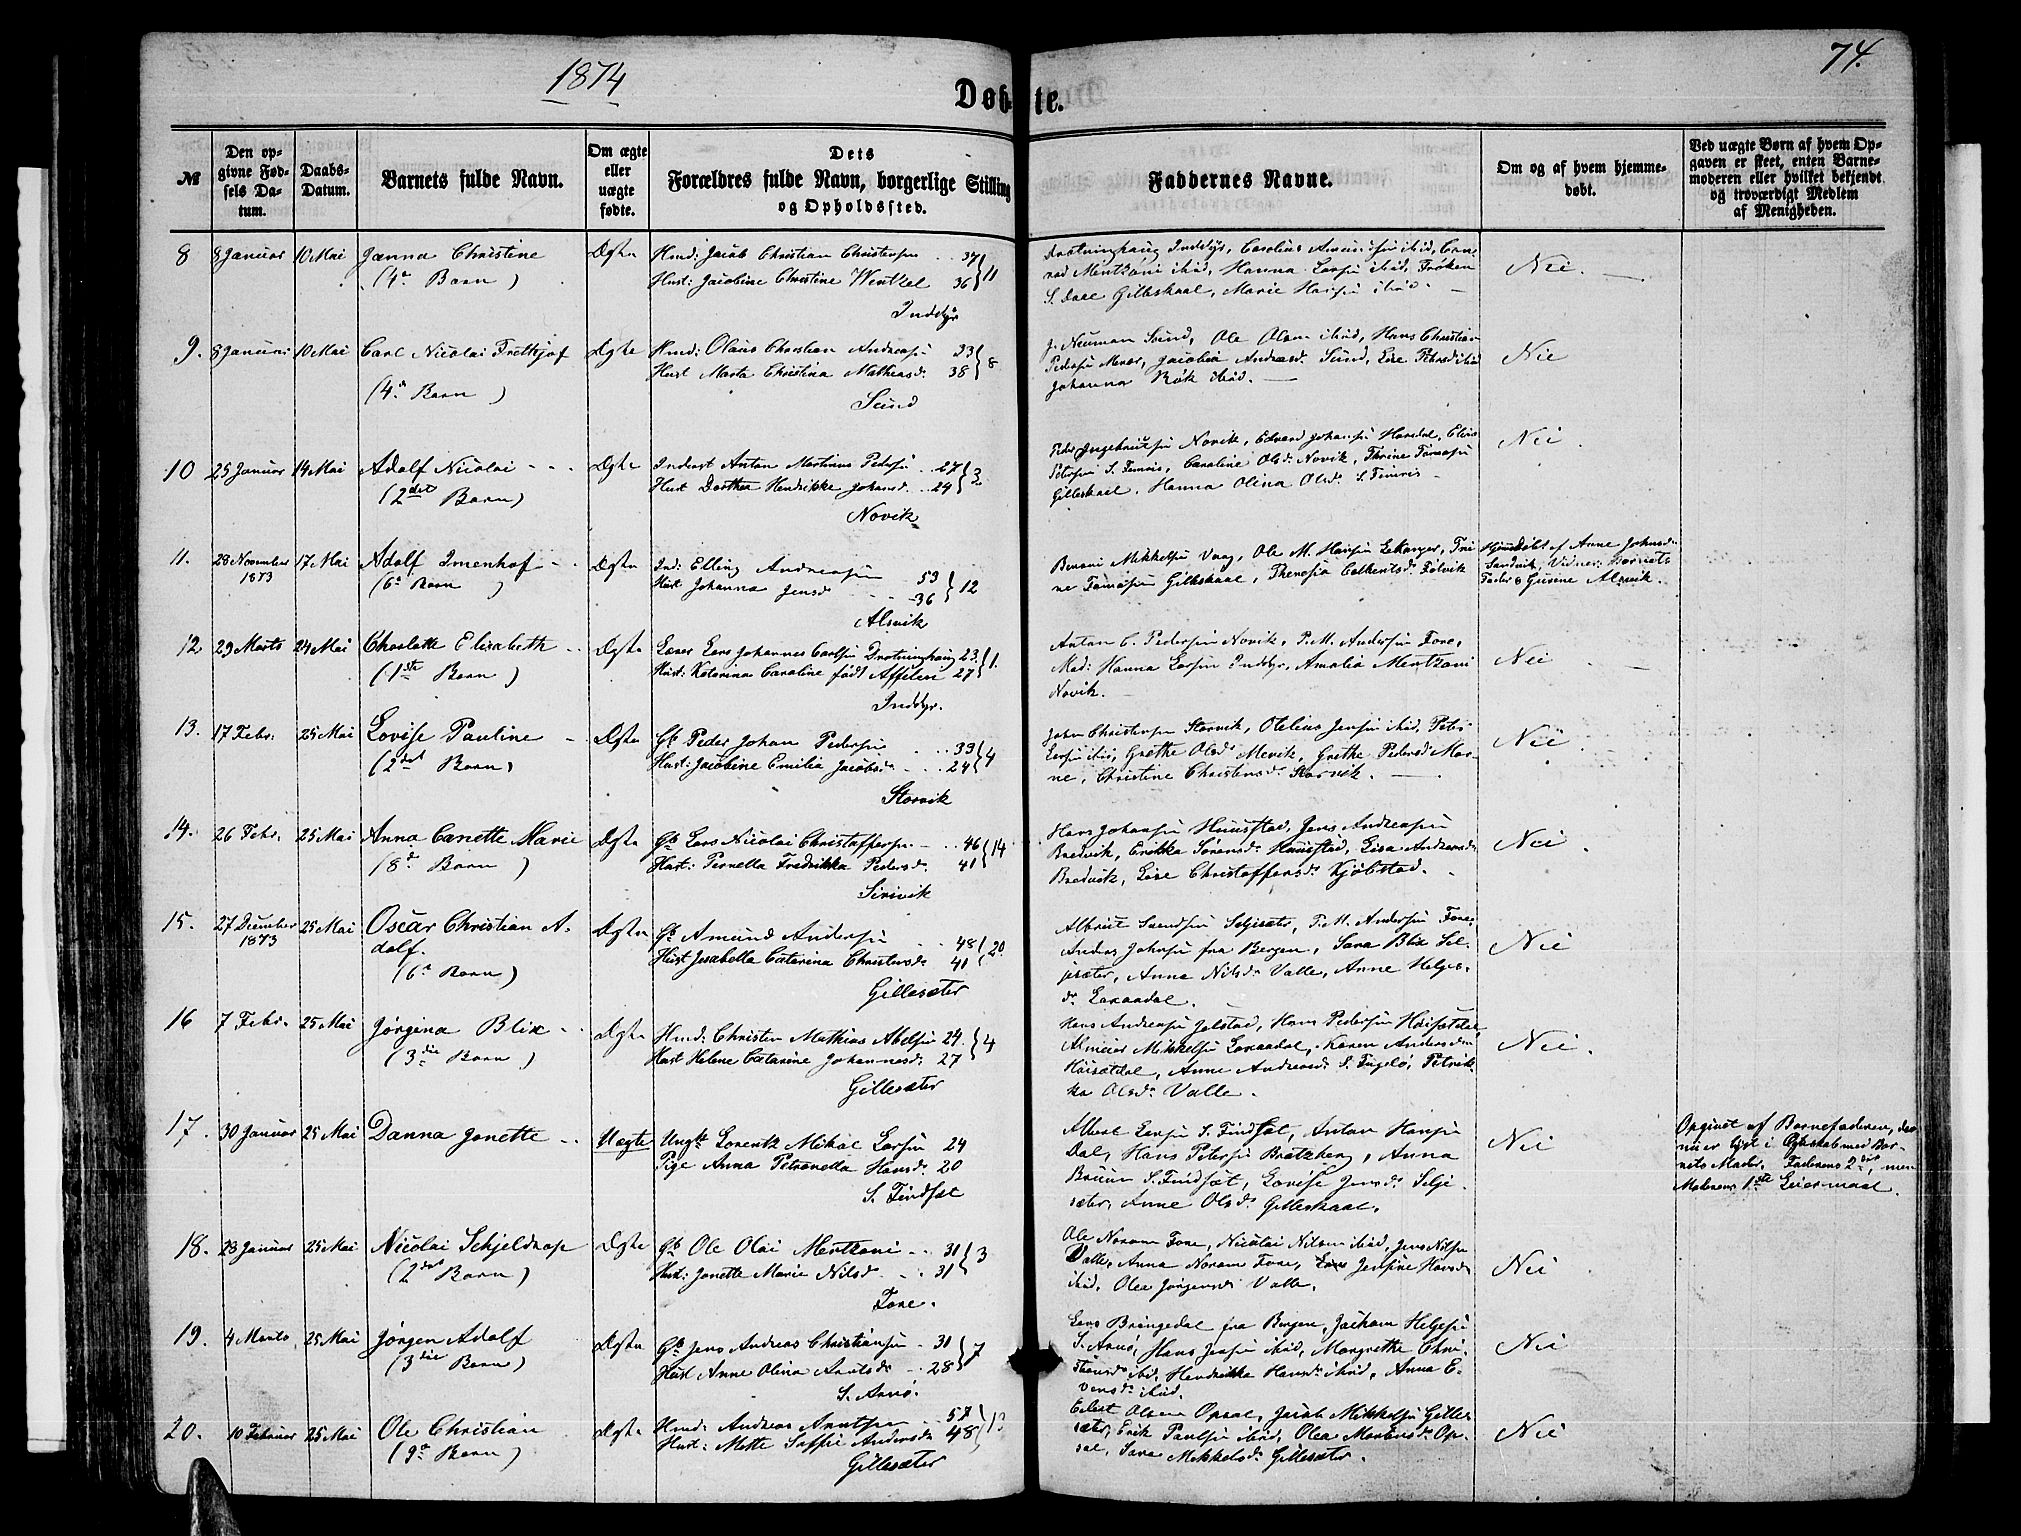 1874
74.
Døbte.
№
Den op-
givne Fød-
sels Da-
tum.
Daabs-
Datum.
Barnets fulde Navn.
Om ægte
eller
uægte
fødte.
Dets
Forældres fulde Navn, borgerlige Stilling
og Opholdssted.
Faddernes Navne.
Om og af hvem hjemme-
døbt.
Ved uægte Børn af hvem Op-
gaven er skeet, enten Barne-
moderen eller hvilket bekjendt
og troværdigt Medlem
af Menigheden.
8 8 Januar 10 Mai Janna Christine Ægte Hmd: Jacob Christian Christensen 37
(4e Barn) Hust: Jacobine Christine Wentzel 36 } 11
Inddyr
Inddyr, Carolius ibid,
ibid, Hanna Larsen ibid, Frøken
Gilleskaal, Marie Hansen ibid.
Nei.
9. 8 Januar 10 Mai Carl Nicolai Ægte Hmd: Olaus Christian Andreasen 33
(4e Barn) Hust Marta Christina Mathiasd. 38 } 8
Sund
J. Neuman Sund, Ole Olsen ibid, Hans Christian
Pedersen, Jacobea Andreasd. Sund, Lise Petersd ibid
Johanna ibid.
Nei
10 25 Januar 14 Mai Adolf Nicolai Ægte Inderst Anton Martinus Peders. 27
(2det Barn) Hust Dorthea Hendrikke Johansd. 24 } 2
Novik
Peder Novik, Edvard Johansen
Petersen, Caroline Olsd. Novik,
Gilleskaal, Hanna Olina Olsd.
Nei
11. 28 November 17 Mai Adolf Imenhof Ægte Ind: Elling Andreasen 53
1873 (6e Barn) Hust Johanna Jensd. 36 } 12
Alsvik
Mikkelsen Vaag, Ole M. Hansen
Gilleskaal,
Hjemdøbt af Anne Johnsd.
Sandvik, Vidner: Barnets
Fader & Alsvik.
12 29 Marts 24 Mai Charlotte Elisabeth Ægte Lærer Lars Johannes Carlsen Drotninghaug 23
(1ste Barn) Hust: Katarina Caroline født 27 } 1.
Inddyr.
Anton C. Pedersen Novik, P.M. Andersen Fore,
Mad: Hanna Larsen Inddyr, Amalia Mentzoni
Novik.
Nei
13. 17 Febr. 25 Mai Lovise Pauline Ægte Gb Peder Johan Pedersen 33
(2det Barn) Hust: Jacobine Emilia Jacobsd. 24 } 4
Storvik
John Christensen Storvik, Otelius Jensen ibid, Peter
Larsen ibid, Grethe Olsd. Mevik, Grethe Pedersd.
Christine Christensd. Storvik.
Nei
14. 26 Febr. 25 Mai Anna Canette Marie Ægte Gb Lars Nicolai Christoffersen 46
(8e Barn) Hust: Pernella Fredrikka Pedersd. 41 } 14
Hans Johansen, Jens Andreasen
Bredvik, Erikka Sørensd., Lisa Andreasd.
Bredvik, Lise Christoffersd. Kjølstad.
Nei.
15. 27 December 25 Mai Oscar Christian A- Ægte Gb Amund Andersen 48
1873 dolf. Hust Isabella Catarina Christensd. 41 } 20
(6e Barn) Gillesæter
Albrigt Svendsen Seljesæter, P.M. Andersen Fore,
Anders Johnsen fra Bergen, Sara Blix Sel-
jesæter, Anna Nilsd. Valle, Anne Helges-
d. Laxaadal.
Nei
16 7 Febr. 25 Mai Jørgina Blix Ægte Hmd: Christen Mathias Abelsen 24
(3die Barn) Hust Helene Catarine Johannesd: 27 } 4
Gillesæter
Hans Andreasen, Hans Pedersen
Mikkelsen Laxaadal, Karen Andersd.
Anne Andreasd. S. Fugelø, Petrik-
ka Olsd. Valle.
Nei.
17. 30 Januar 25 Mai Danna Jonette Uægte Ungk. Lorentz Mikal Larsen 24
Pige Anna Petronella Hansd. 20
S. Findset
Albert Larsen S. Findset, Anton Hansen
Dal, Hans Petersen, Anna
Bruun S. Findset, Lovise Jensd. Selje-
sæter, Anne Olsd. Gilleskaal.
Nei
Opgivet af Barnefaderen, der
nu er lyst i Ægteskab med Bar-
nets Moder. Faderens 2det, men
Moderens 1ste Leiermaal.
18. 28 Januar 25 Mai Nicolai Schjeldrop Ægte Gb Ole Olai Mentzoni 31
(2det Barn) Hust: Jonette Marie Nilsd. 31 } 3
Fore.
Ole Norum Fore, Nicolai Nilsen ibid, Jens Nilsen
Valle, Anna Norum Fore, Jensine Hansd.
ibid, Olea Jørgensd. Valle.
Nei
19. 4 Marts 25 Mai Jørgen Adolf Ægte Gb Jens Andreas Christiansen 31
(3die Barn) Hust Anne Olina Arntsd. 28 } 7
S. Arnø.
Lars Bringedal fra Bergen, Joakim Helgesen
S. Arnø, Hans Jensen ibid, Margrethe Chri-
stiansd. ibid, Hendrikka Hansd. ibid, Anna E-
vensd. ibid.
Nei
20. 10 Februar 25 Mai Ole Christian Ægte Hmd: Andreas Arntsen 57
(9e Barn) Hust: Mette Soffie Andersd. 48
Gillesæter
Eilert Olsen Opsal, Jacob Mikkelsen Gille-
sæter, Erik Paulsen ibid, Olea Mortensd. Op-
sal, Sara Mikkelsd. Gillesæter.
Nei